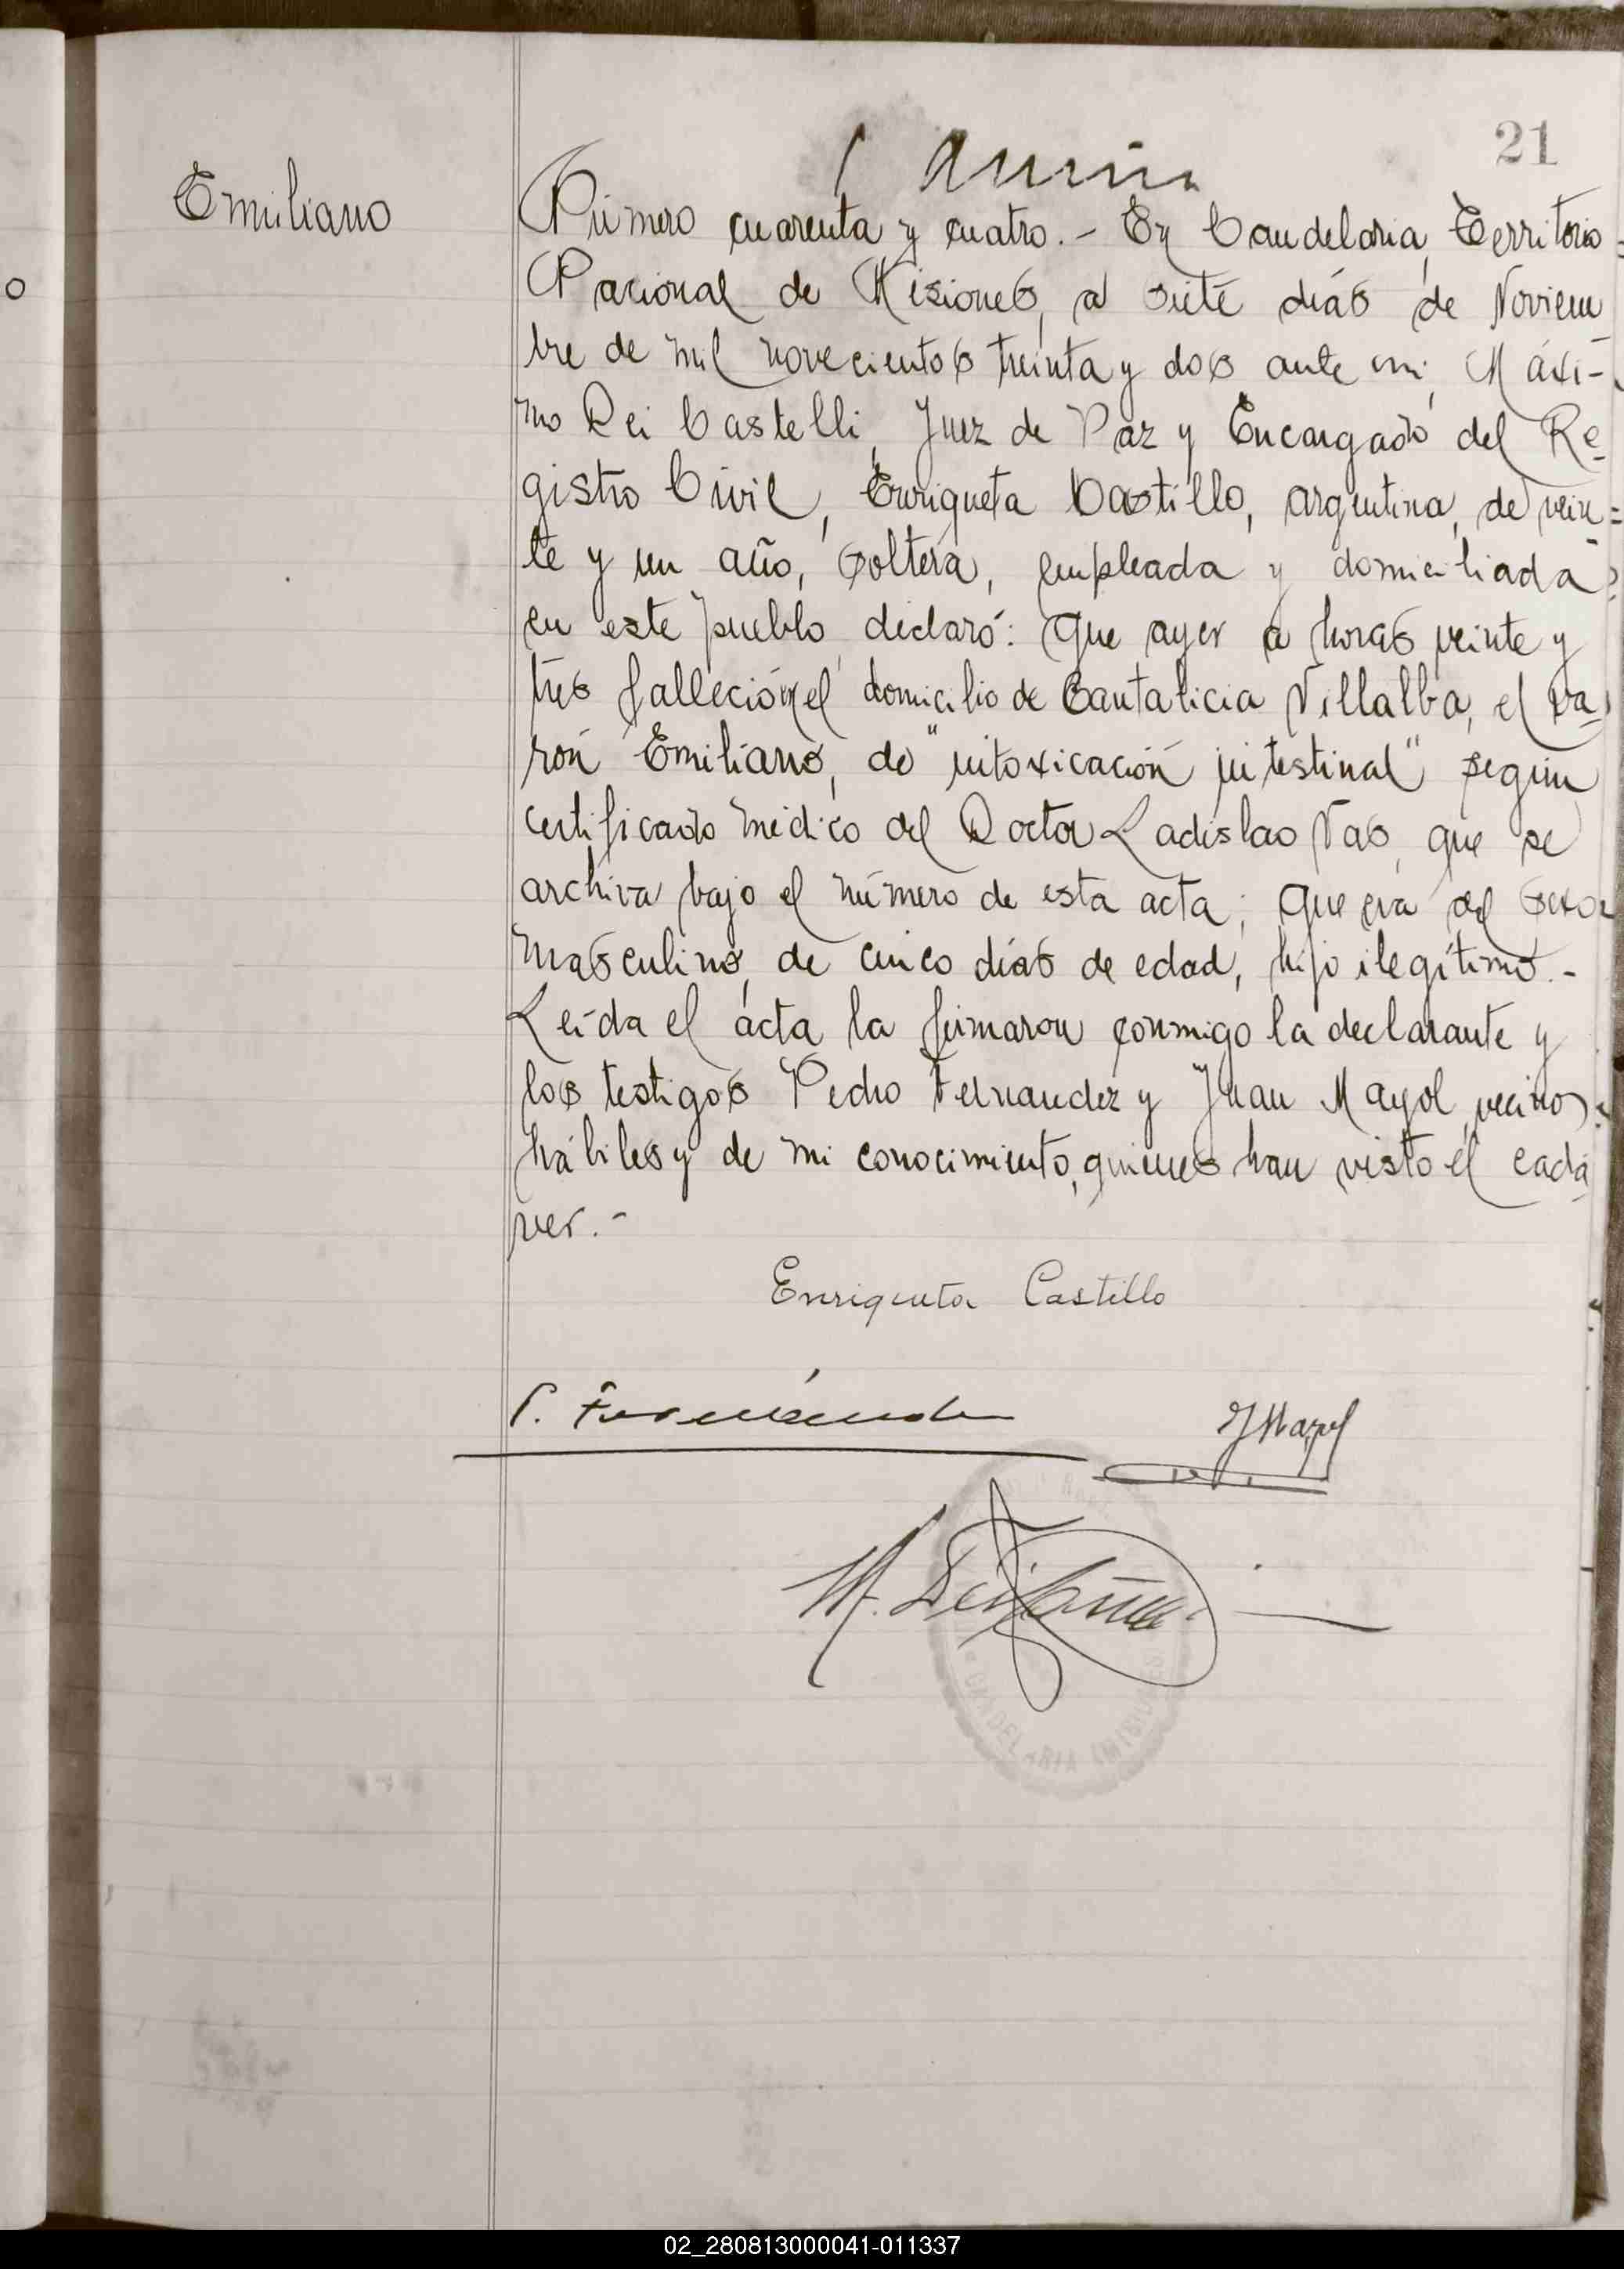 21
Emiliano
Número cuarenta y cuatro.- En Candelaria, Territorio
Nacional de Misiones, a siete días de Noviem
bre de mil novecientos treinta y dos ante mi, Máxi-
mo Dei Castelli, Juez de Paz y Encargado del Re-
gistro Civil, Enriqueta Castillo, argentina, de vein=
te y un año, soltera, empleada y domiciliada
en este pueblo, declaró: Que ayer a horas veinte y
tres falleció en el domicilio de Cantalicia Villalba, el va-
rón Emiliano, de "intoxicación intestinal" según
certificado médico del Doctor Ladislao Nas, que se
archiva bajo el número de esta acta; que era del sexo
masculino, de cinco días de edad, hijo ilegítimo.-
Leída el acta la firmaron conmigo la declarante y
los testigos Pedro Fernandez y Juan Mayol, vecinos
hábiles y de mi conocimiento, quienes han visto el cadá
ver.-
Enriqueta Castillo
P. Fernández
J Mayol
CANDELARIA (MISIONES)
02_280813000041-011337